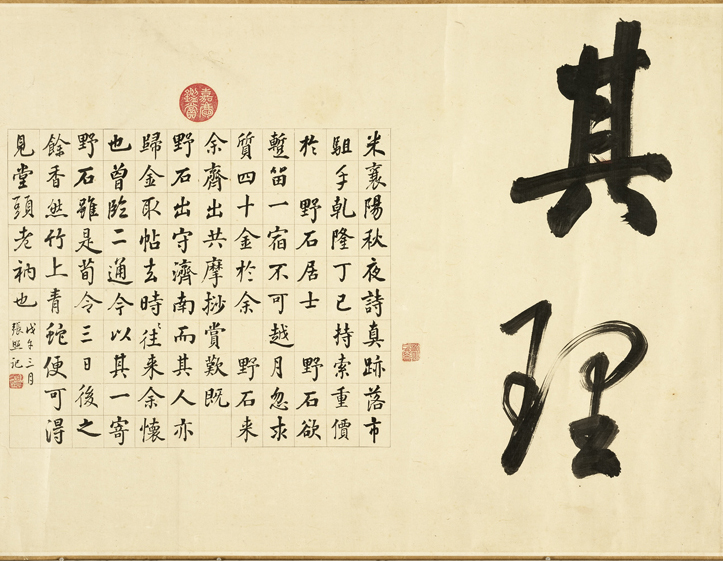 其理
米襄陽秋夜詩真跡落市
駔手乾隆丁巳持索重價
於 野石居士 野石欲
蹔留一宿不可越月忽求
質四十金於余 野石来
余齋出共摩挱賞歎既
野石出守濟南而其人亦
歸金取帖去時往来余懷
也曾臨二通今以其一寄
野石雖是荀令三日後之
餘香然竹上青蛇便可得
見堂頭老衲也
戊午三月
張照記
嘉慶鑑賞